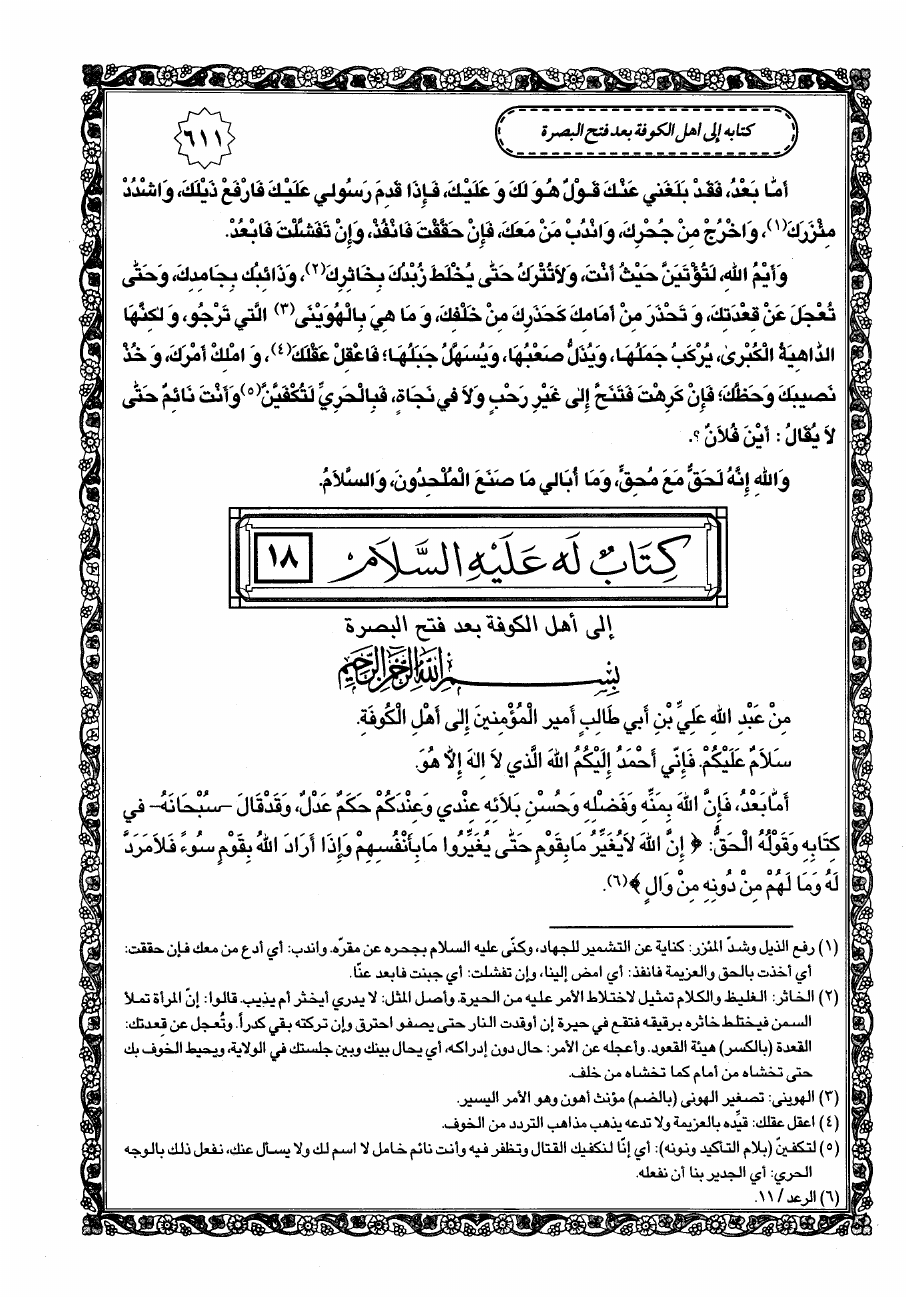 كتابه إلى أهل الكوفة بعد فتح البصرة
٦١١
أمّا بَعْدُ، فَقَدْ بَلَغَني عَنْكَ قَوْلٌ هُوَ لَكَ وَ عَلَيْكَ، فَإِذَا قَدِمَ رَسُولي عَلَيْكَ فَارْفَعْ ذَيْلَكَ، وَاشْدُدْ
مِئْزَرَكَ(١)، وَاخْرُجْ مِنْ جُحْرِكَ، وَانْدُبْ مَنْ مَعَكَ، فَإِنْ حَقَّقْتَ فَانْفُذْ، وَإِنْ تَفَشَّلْتَ فَابْعُدْ.
وَأيْمُ اللهِ، لَتُؤْتَيَنَّ حَيْثُ أنْتَ، وَلاَتُتْرَكُ حَتّى يُخْلَطَ زُبْدُكَ بِخَاثِرِكَ(٢)، وَذَائِبُكَ بِجَامِدِكَ، وَحَتّى
تُعْجَلَ عَنْ قِعْدَتِكَ، وَ تَحْذَرَ مِنْ أمَامِكَ كَحَذَرِكَ مِنْ خَلْفِكَ، وَ مَا هِيَ بِالْهُوَيْنَى(٣) الَّتي تَرْجُو، وَ لكِنَّهَا
الدَّاهِيَةُ الْكُبْرىٰ، يُرْكَبُ جَمَلُهَا، وَيُذَلُّ صَعْبُهَا، وَيُسَهَّلُ جَبَلُهَا؛ فَاعْقِلْ عَقْلَكَ(٤)، وَ امْلِكْ أمْرَكَ، وَ خُذْ
نَصيبَكَ وَحَظَّكَ؛ فَإنْ كَرِهْتَ فَتَنَحَّ إلى غَيْرِ رَحْبٍ وَلاَ في نَجَاةٍ، فَبِالْحَرِيِّ لَتُكْفَيَنَّ(٥) وَأنْتَ نَائِمٌ حَتّى
لاَ يُقَالُ: أيْنَ فُلاَنٌ؟.
وَاللهِ إنَّهُ لَحَقٌّ مَعَ مُحِقٍّ، وَمَا أُبَالي مَا صَنَعَ الْمُلْحِدُونَ، وَالسَّلاَمُ.
كِتَابٌ لَه عَلَيْهِ السَّلاَم ١٨
إلى أهل الكوفة بعد فتح البصرة
بِسْمِ اللهِ الرَّحْمٰنِ الرَّحيمِ
مِنْ عَبْدِ اللهِ عَلِيِّ بْنِ أبي طَالِبٍ أميرِ الْمُؤْمِنينَ إلىٰ أهْلِ الْكُوفَةِ.
سَلاَمٌ عَلَيْكُمْ. فَإنّي أحْمَدُ إلَيْكُمُ اللهَ الَّذي لاَ الهَ إلاّ هُوَ.
أمّابَعْدُ، فَإنَّ اللهَ بِمَنِّهِ وَفَضْلِهِ وَحُسْنِ بَلاَئِهِ عِنْدي وَعِنْدَكُمْ حَكَمٌ عَدْلٌ، وَقَدْقَالَ ـ سُبْحَانَهُ ـ في
كِتَابِهِ وَقَوْلُهُ الْحَقُّ: ﴿ إنَّ اللهَ لاَيُغَيِّرُ مَابِقَوْمٍ حَتّى يُغَيِّرُوا مَابِأَنْفُسِهِمْ وَإذَا أرَادَ اللهُ بِقَوْمٍ سُوءً فَلاَمَرَدَّ
لَهُ وَمَا لَهُمْ مِنْ دُونِهِ مِنْ وَالٍ ﴾(٦).
(١) رفع الذيل وشدّ المئزر: كناية عن التشمير للجهاد، وكنّى عليه السلام بجحره عن مقرّه. واندب: أي أدع من معك فإن حققت:
أي أخذت بالحق والعزيمة فانفذ: أي امض إلينا، وإن تفشلت: أي جبنت فابعد عنّا.
(٢) الخاثر: الغليظ والكلام تمثيل لاختلاط الأمر عليه من الحيرة. وأصل المثل: لا يدري أيخثر أم يذيب. قالوا: إنّ المرأة تملأ
السمن فيختلط خاثره برقيقه فتقع في حيرة إن أوقدت النار حتى يصفو احترق وإن تركته بقي كدراً. وتُعجل عن قعدتك:
القعدة (بالكسر) هيئة القعود. وأعجله عن الأمر: حال دون إدراكه، أي يحال بينك وبين جلستك في الولاية، ويحيط الخوف بك
حتى تخشاه من أمام كما تخشاه من خلف.
(٣) الهوينى: تصغير الهونى (بالضم) مؤنث أهون وهو الأمر اليسير.
(٤) اعقل عقلك: قيِّده بالعزيمة ولا تدعه يذهب مذاهب التردد من الخوف.
(٥) لتكفينّ (بلام التأكيد ونونه): أي إنّا لنكفيك القتال وتظفر فيه وأنت نائم خامل لا اسم لك ولا يسأل عنك، نفعل ذلك بالوجه
الحري: أي الجدير بنا أن نفعله.
(٦) الرعد / ١١.